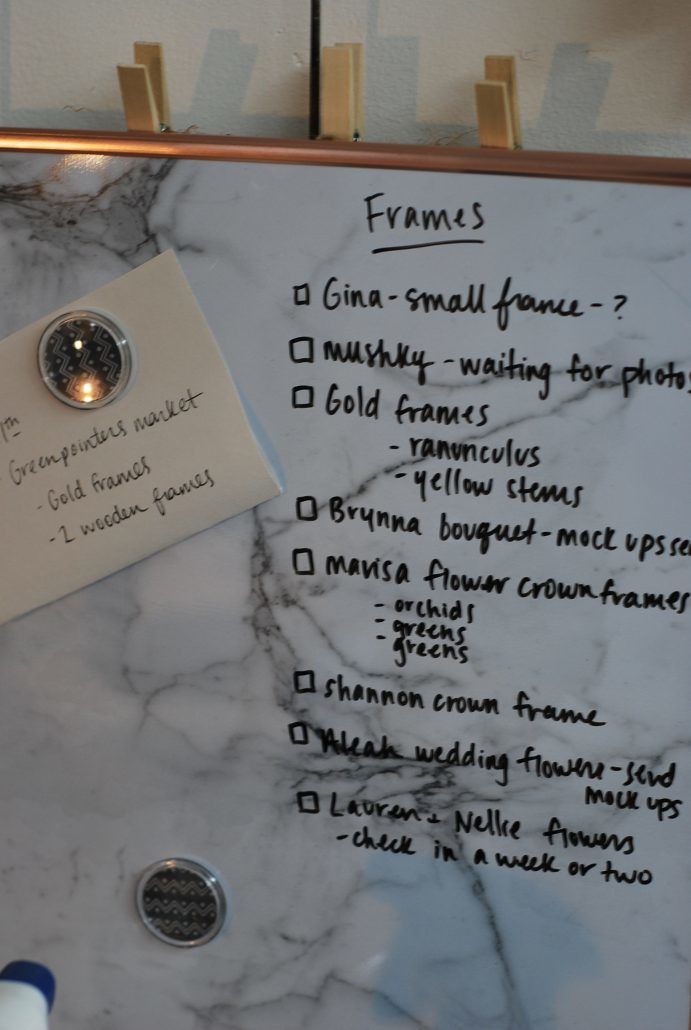 Frames
□ Gina - small france - ?
□ mushky - waiting for photos
□ Gold frames
- ranunculus
- yellow stems
□ Brynna bouquet - mock ups se
□ marisa flower crown frames
- orchids
- greens
- greens
□ shannon crown frame
□ Aleah wedding flowers - send
mock ups
□ Lauren + Nellie flowers
- check in a week or two
th
- Greenpointers market
- Gold frames
- 2 wooden frames